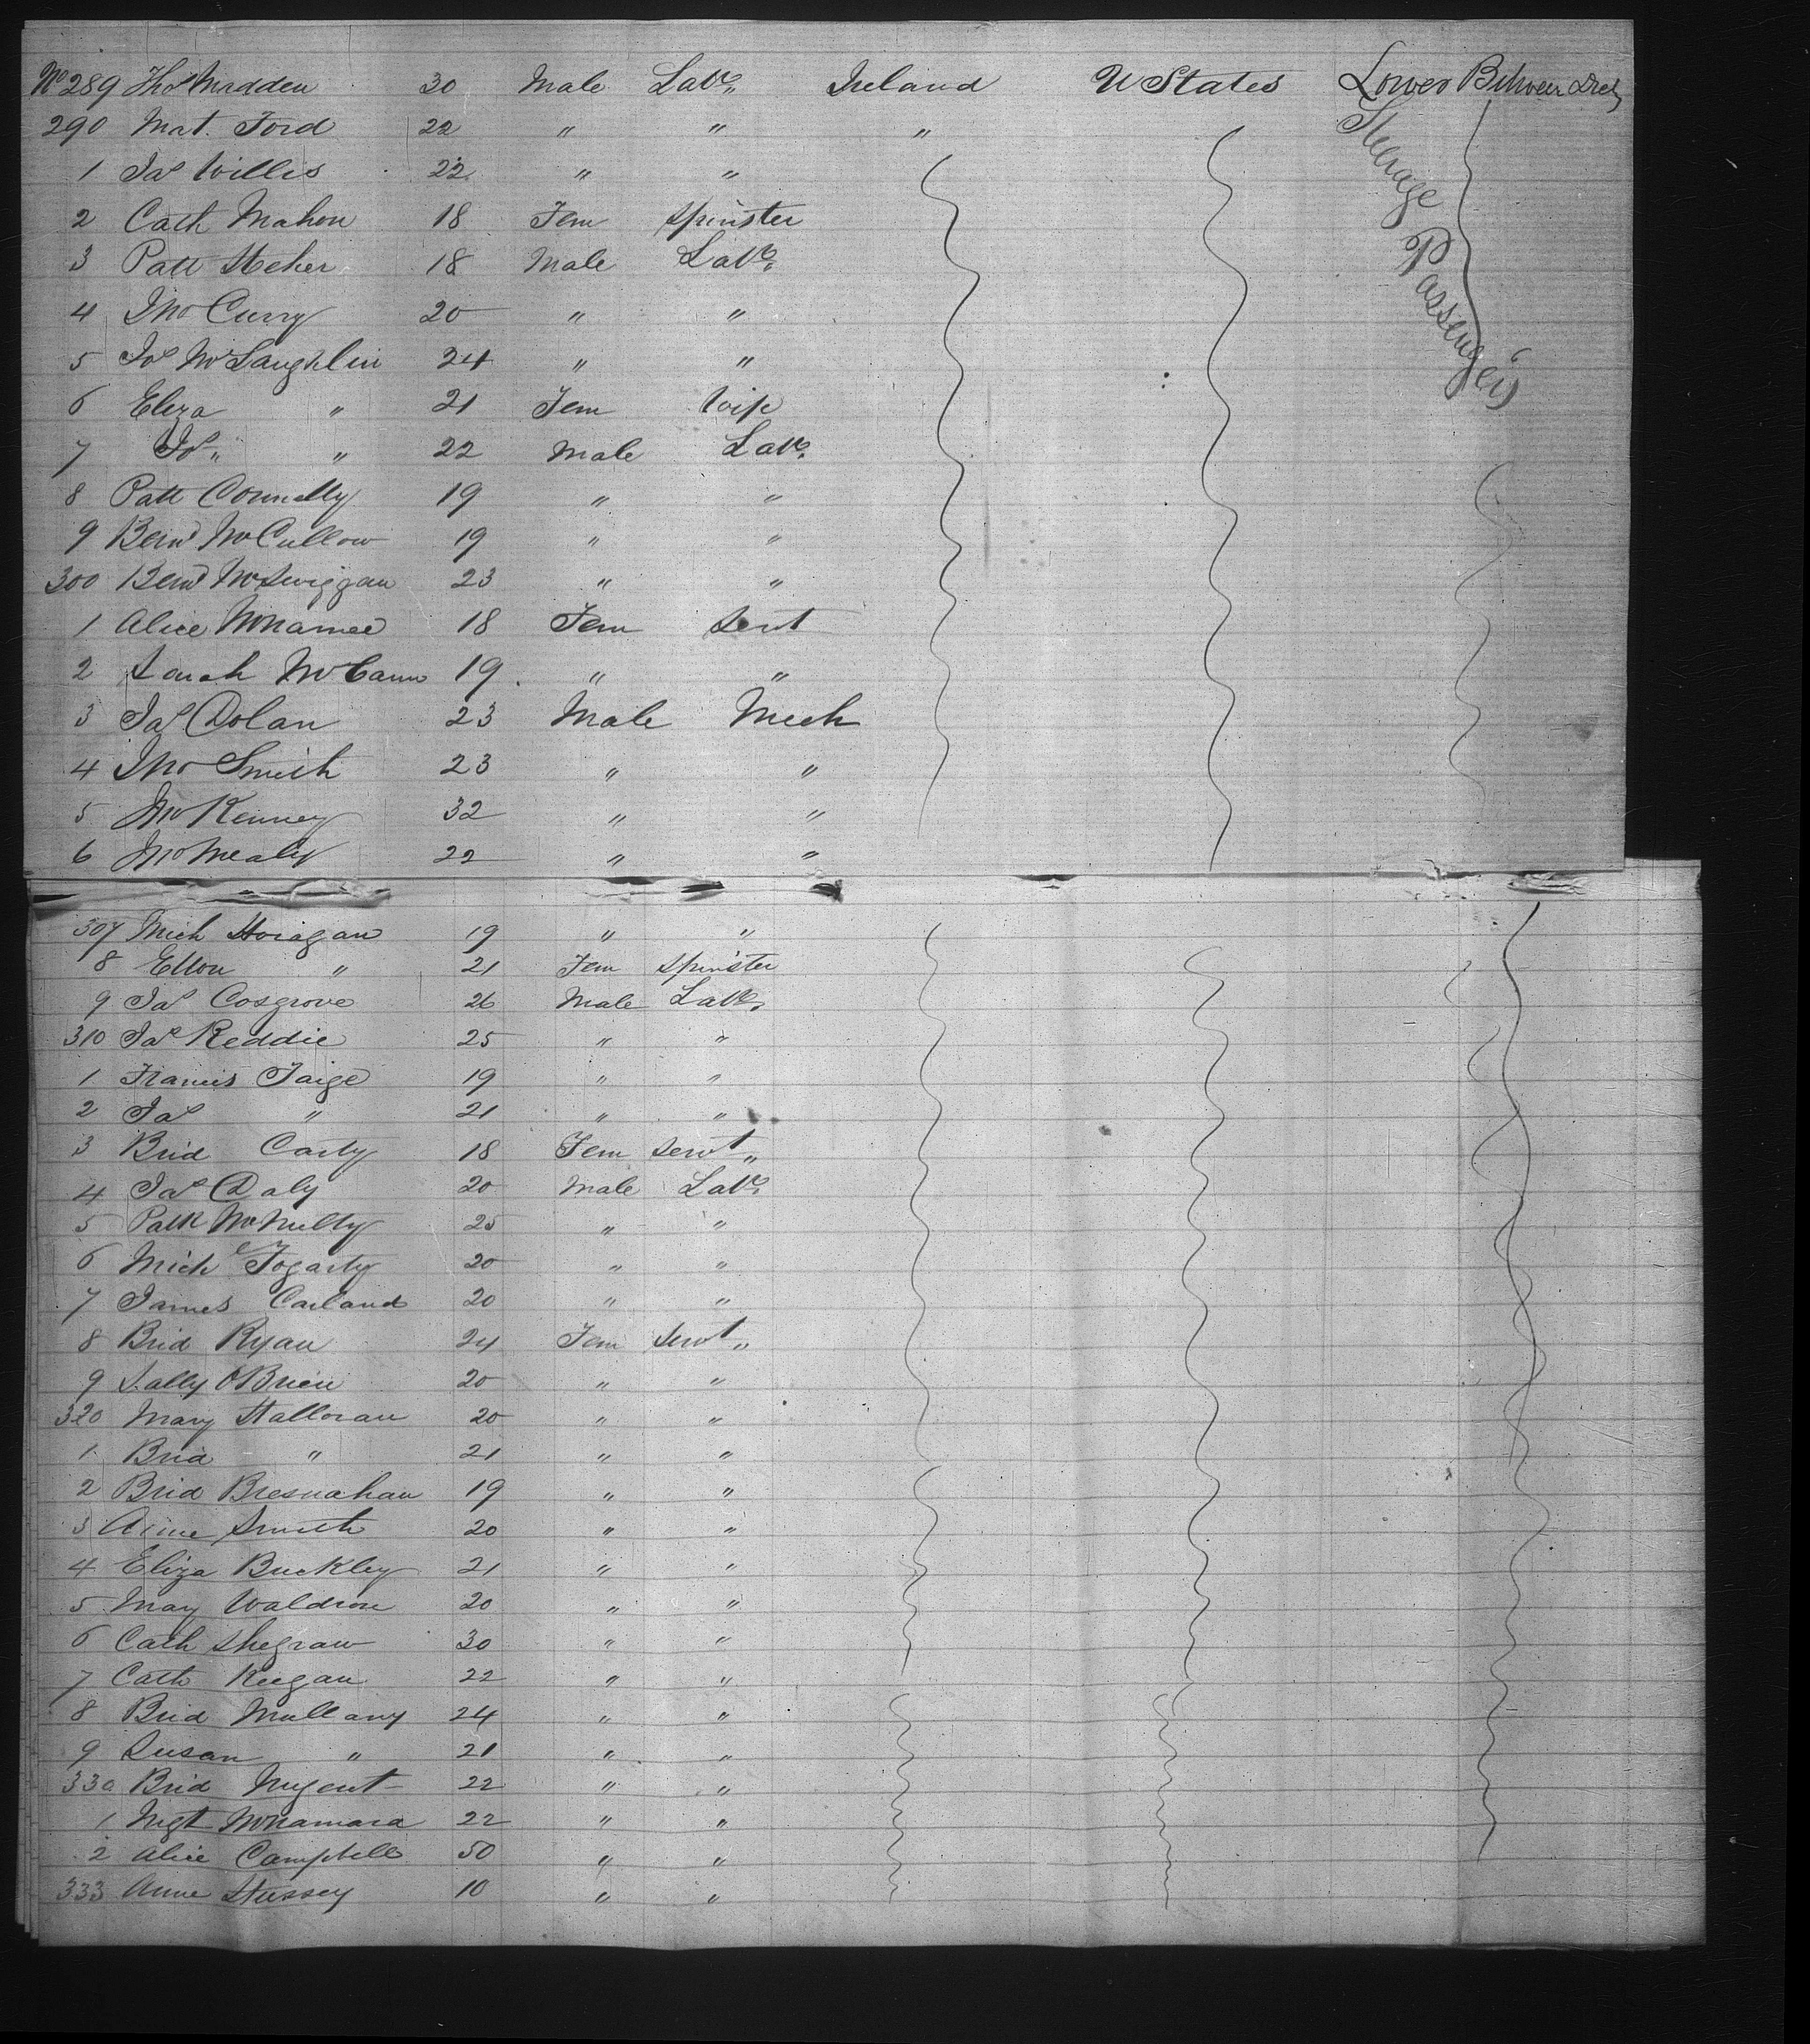 No 289 Thos Madden 30 Male Labr, Ireland U States Lower Between Decks
290 Mat. Ford 22 " " "
Steerage Passengers
1 Jas Willis 22 " "
2 Cath Mahon 18 Fem Spinster
3 Patt Meher 18 Male Labr,
4 Jno Curry 20 " "
5 Jos McLaughlin 24 " "
6 Eliza " 21 Fem Wife
7 Jos " " 22 Male Labr,
8 Patt Connelly 19 " "
9 Bernd McCullow 19 " "
300 Bernd McSwiggan 23 " "
1 Alice McNamee 18 Fem Servt
2 Sarah McCann 19 " "
3 Jas Dolan 23 Male Mech
4 Jno Smith 23 " "
5 Jno Kenney 32 " "
6 Jno Mealy 22 " "
307 Mich Horagan 19 " "
8 Ellen " 21 Fem Spinster
9 Jas Cosgrove 26 Male Labr,
310 Jas Reddie 25 " "
1 Francis Taige 19 " "
2 Jas " 21 " "
3 Brid Carty 18 Fem Servt "
4 Jas Daly 20 Male Labr,
5 Patk McNulty 25 " "
6 Mich Fogarty 20 " "
7 James Carland 20 " "
8 Brid Ryan 24 Fem Servt "
9 Sally O'Brien 20 " "
320 Mary Halloran 20 " "
1 Brid " 21 " "
2 Brid Bresnahan 19 " "
3 Anne Smith 20 " "
4 Eliza Buckley 21 " "
5 Mary Waldron 20 " "
6 Cath Shegraw 30 " "
7 Cath Keegan 22 " "
8 Brid Mullany 24 " "
9 Susan " 21 " "
330 Brid Nugent 22 " "
1 Mgt McNamara 22 " "
2 Alice Campbell 50 " "
333 Anne Hussey 10 " "